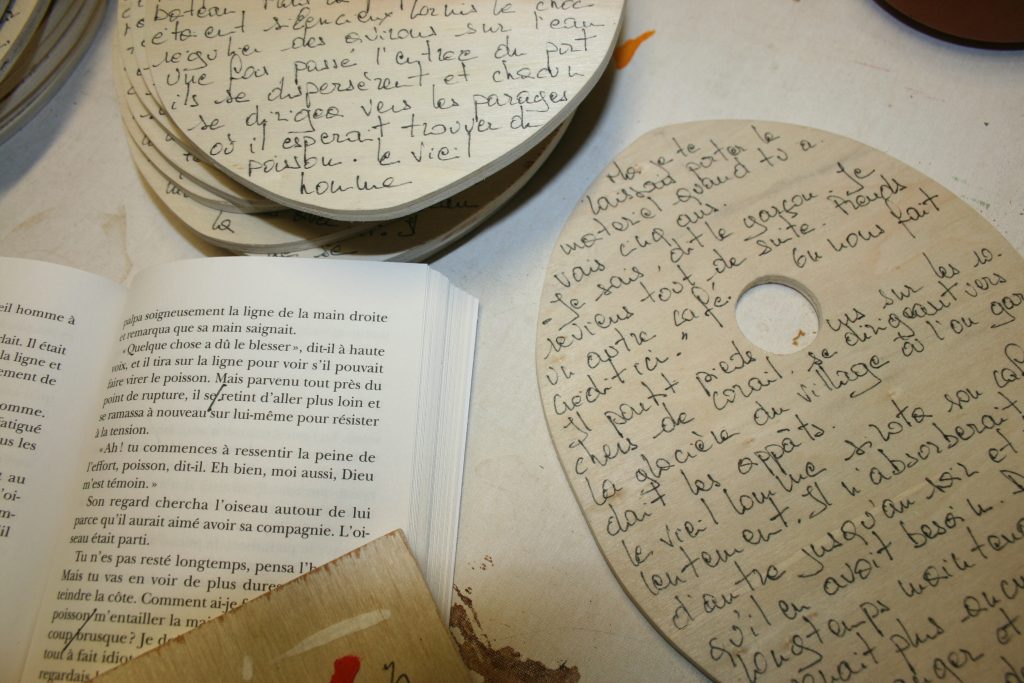 bateau
étaient silencieux hormis le choc
régulier des avirons sur l'eau
Une fois passé l'entrée du port
ils se dispersèrent et chacun
se dirigea vers les parages
où il espérait trouver du
poisson. Le vieil
homme
la
eil homme à
dait. Il était
la ligne et
ement de
omme.
fatigué
us les
t au
'oi-
m-
'il
palpa soigneusement la ligne de la main droite
et remarqua que sa main saignait.
« Quelque chose a dû le blesser », dit-il à haute
voix, et il tira sur la ligne pour voir s'il pouvait
faire virer le poisson. Mais parvenu tout près du
point de rupture, il se retint d'aller plus loin et
se ramassa à nouveau sur lui-même pour résister
à la tension.
« Ah ! tu commences à ressentir la peine de
l'effort, poisson, dit-il. Eh bien, moi aussi, Dieu
m'est témoin. »
Son regard chercha l'oiseau autour de lui
parce qu'il aurait aimé avoir sa compagnie. L'oi-
seau était parti.
Tu n'es pas resté longtemps, pensa l'h
Mais tu vas en voir de plus dures
teindre la côte. Comment ai-je
poisson m'entailler la mai
coup brusque ? Je d
tout à fait idiot
regardais l
Moi je te
laissais porter le
matériel quand tu a
vais cinq ans.
- Je sais, dit le garçon. Je
reviens tout de suite. Prends
un autre café. On nous fait
crédit ici."
Il partit pieds nus sur les ro-
chers de corail, se dirigeant vers
la glacière du village où l'on gar
dait les appâts.
Le vieil homme sirota son café
lentement. Il n'absorberait
d'autre jusqu'au soir et
qu'il en avait besoin. D
longtemps maintenant
plus aucun
nger et